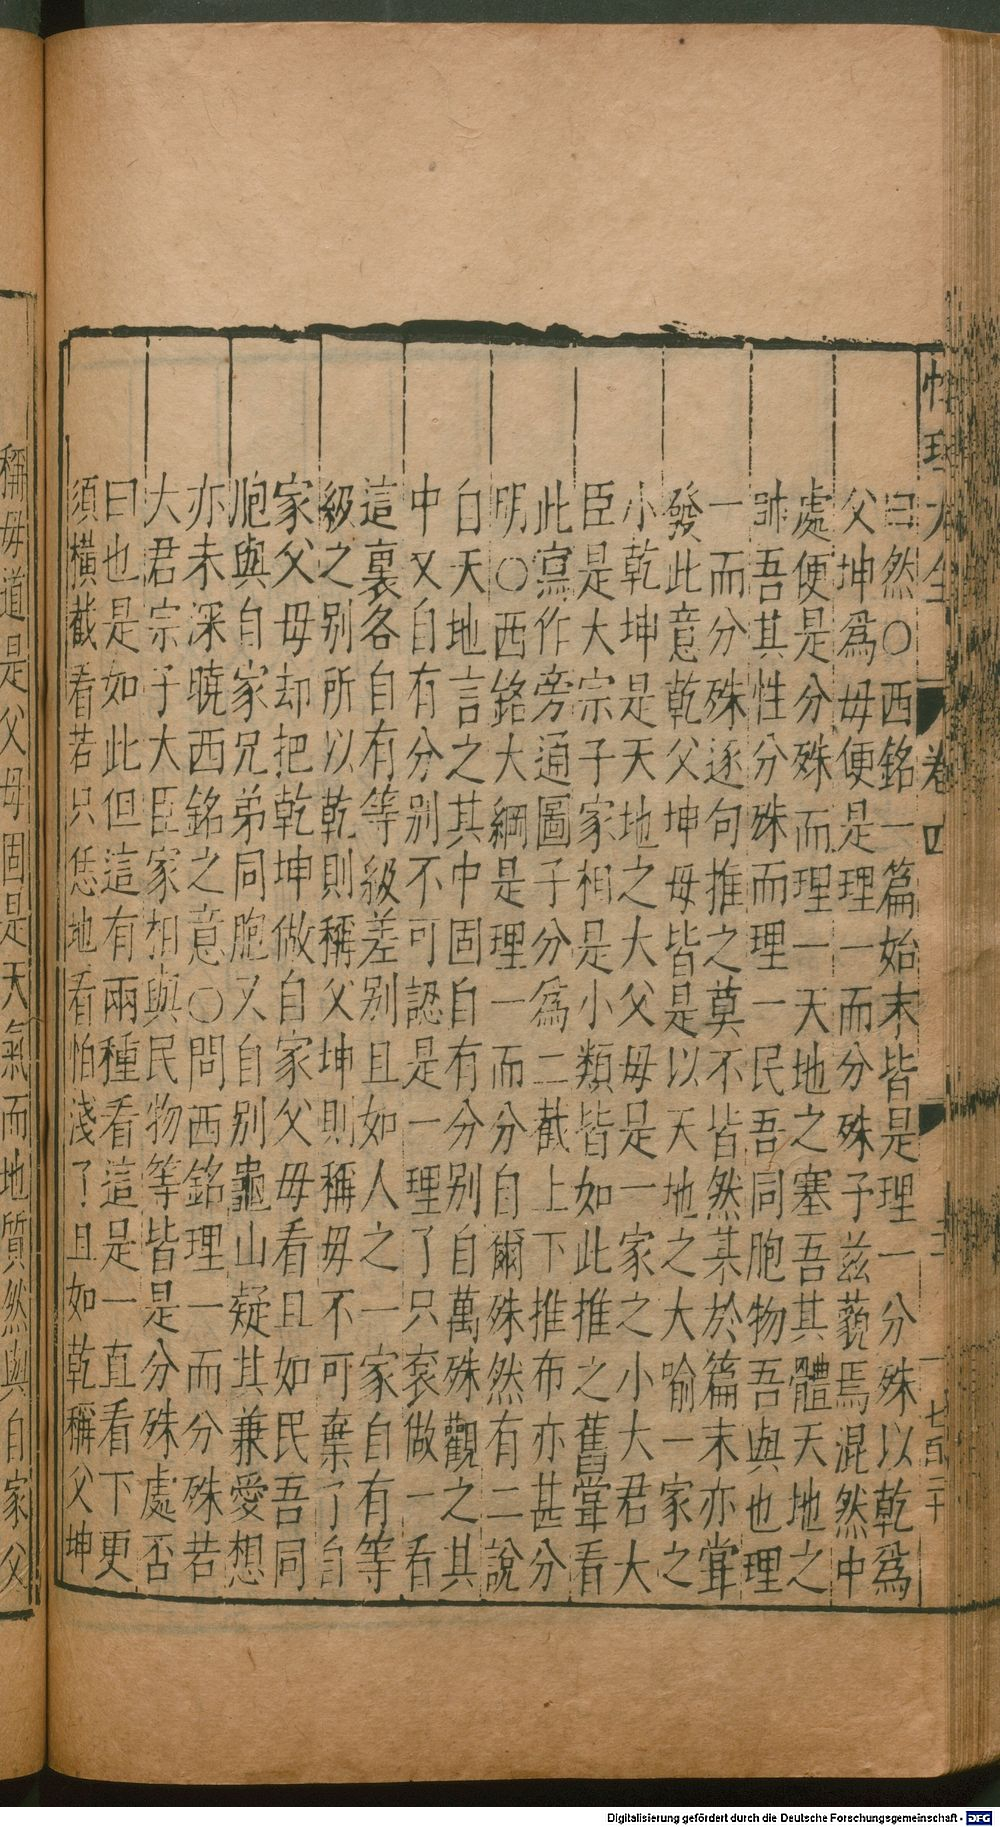 性理大全 卷四 七百三十
曰然○西銘一篇始末皆是理一分殊以乾爲
父坤爲母便是理一而分殊子茲藐焉混然中
處便是分殊而理一天地之塞吾其體天地之
帥吾其性分殊而理一民吾同胞物吾與也理
一而分殊逐句推之莫不皆然某於篇末亦嘗
發此意乾父坤母皆是以天地之大喻一家之
小乾坤是天地之大父母是一家之小大君大
臣是大宗子家相是小類皆如此推之舊嘗看
此寫作旁通圖子分爲二截上下推布亦甚分
明○西銘大綱是理一而分自爾殊然有二說
自天地言之其中固自有分別自萬殊觀之其
中又自有分別不可認是一理了只衮做一看
這裏各自有等級差別且如人之一家自有等
級之別所以乾則稱父坤則稱母不可棄了自
家父母却把乾坤做自家父母看且如民吾同
胞與自家兄弟同胞又自別龜山疑其兼愛想
亦未深曉西銘之意○問西銘理一而分殊若
大君宗子大臣家相與民物等皆是分殊處否
曰也是如此但這有兩種看這是一直看下更
須橫截看若只恁地看怕淺了且如乾稱父坤
稱母道是父母固是天氣而地質然與自家父
Digitalisierung gefördert durch die Deutsche Forschungsgemeinschaft - DFG